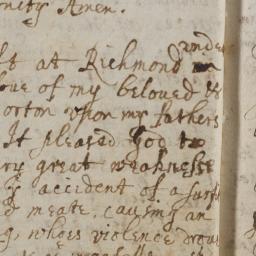 nity Amen.
under
st at Richmond in
love of my beloved &
orton upon my fathers
It pleased God to
ery great weaknesse
accident of a surf
d meate, causing an
g, whose violence drove